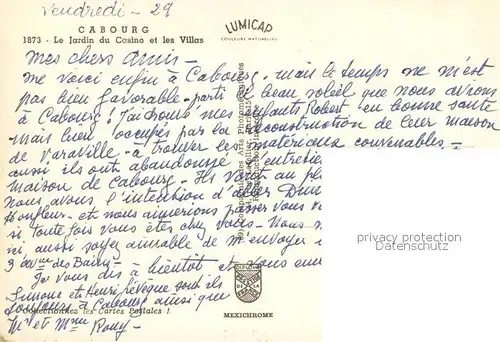 Vendredi - 29
CABOURG
1873 - Le Jardin du Casino et les Villas
LUMICAP
COULEURS NATURELLES
Mes chers Amis -
me voici enfin à Cabourg, mais le temps ne m'est
pas bien favorable - parti le beau soleil que nous avions
à Cabourg! J'ai trouvé mes enfants Robert en bonne santé
mais bien occupés par la reconstruction de leur maison
de Varaville - à trouver les matériaux convenables -
aussi ils ont abandonné l'entretien
maison de Cabourg - Ils vont au
Nous avons l'intention d'aller
Honfleur - et nous aimerions passer vous
si toutefois vous êtes chez vous - Nous
ni, aussi soyez aimable de m'envoyer
3 avue des Bains -
Je vous dis à bientôt et vous
Simone et Henri Lévêque sont ils
toujours à Cabourg ainsi que
Mr et Mme Rouy -
Collectionnez les Cartes Postales !
MEXICHROME
privacy protection
Datenschutz